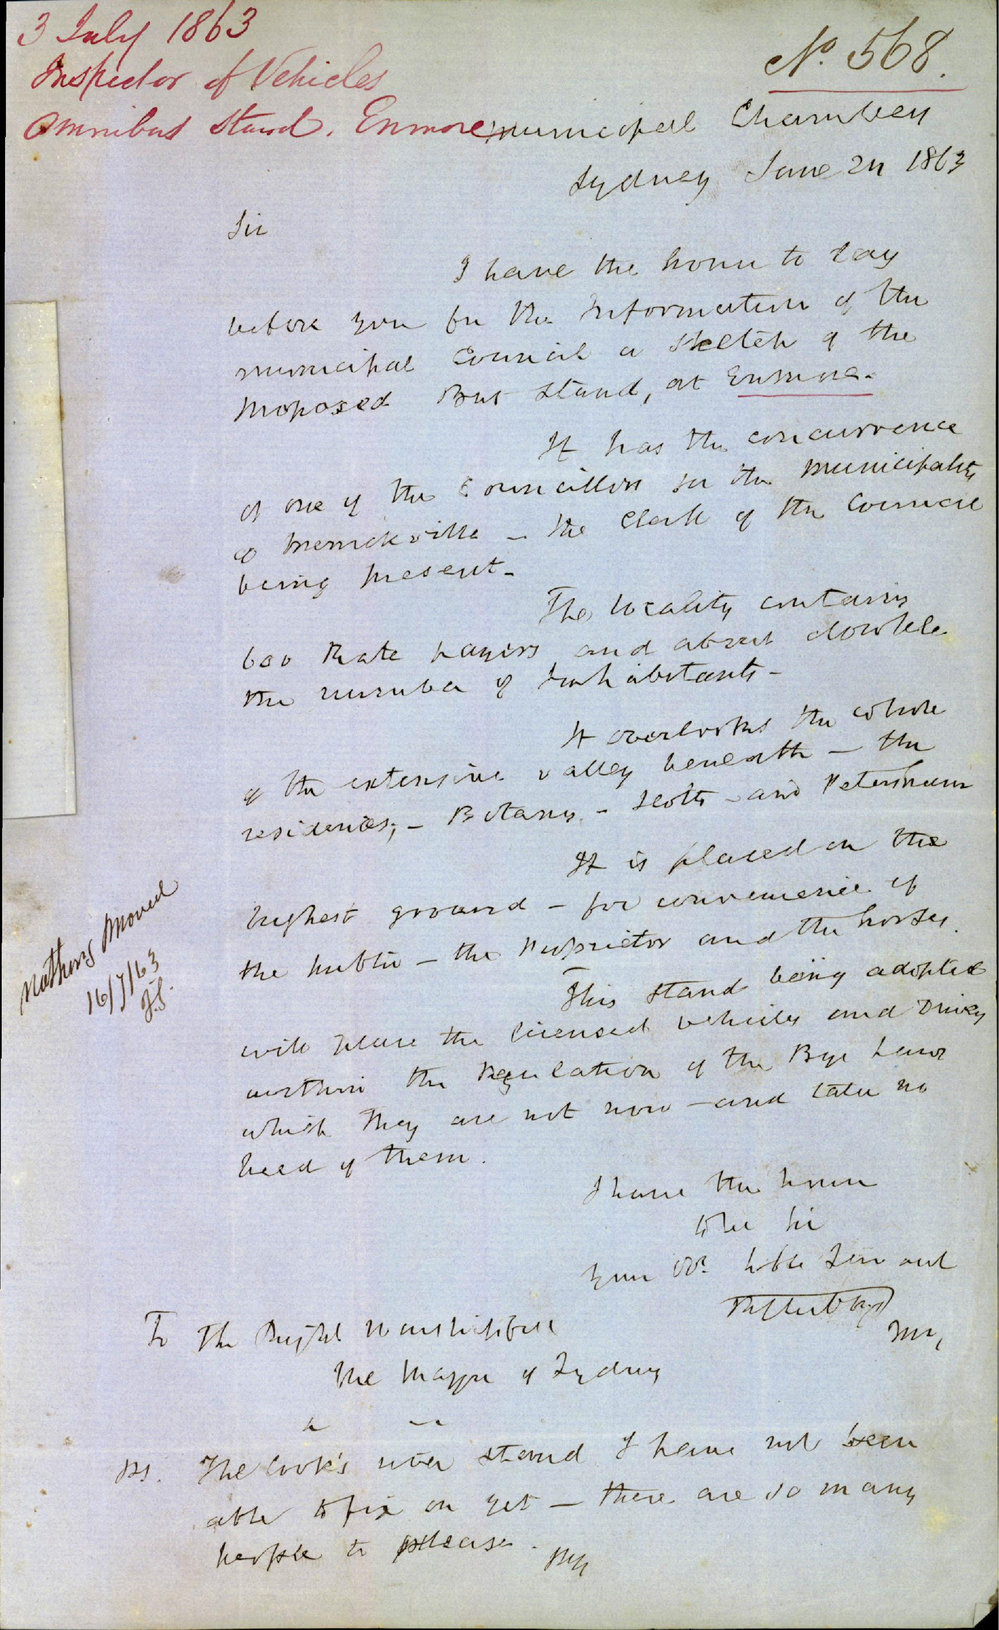 3 July 1863
Inspector of Vehicles
Omnibus Stand. Enmore
No. 568.
Municipal Chambers
Sydney June 24 1863
Sir
I have the honor to lay
before you for the Information of the
Municipal Council a sketch of the
proposed Bus Stand, at Enmore.
It has the concurrence
of one of the Councillors for the Municipality
of Marrickville – the Clerk of the Council
being present –
The locality contains
600 Rate payers and about double
the number of Inhabitants –
It overlooks the whole
of the extensive valley beneath – the
residences, – Botany – Scotts – and Petersham
It is placed on the
highest ground – for convenience of
the public – the Proprietor and the horses.
This Stand being adopted
will place the licensed vehicles and Drivers
within the Regulation of the Bye Laws
which they are not now – and take no
heed of them.
I have the honor
to be Sir
Your Obt. hble Servant
Insp
To The Right Worshipful
The Mayor of Sydney
PS. The Cook's river stand I have not been
able to fix on yet – there are so many
people to please.
Nothing Moved
16/7/63